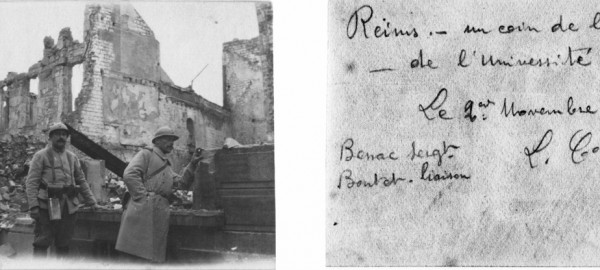 Reïms. — un coin de l
— de l'Université
Le 2 Novembre
Bessac Sergt.
L. Co
Boutet - liaison